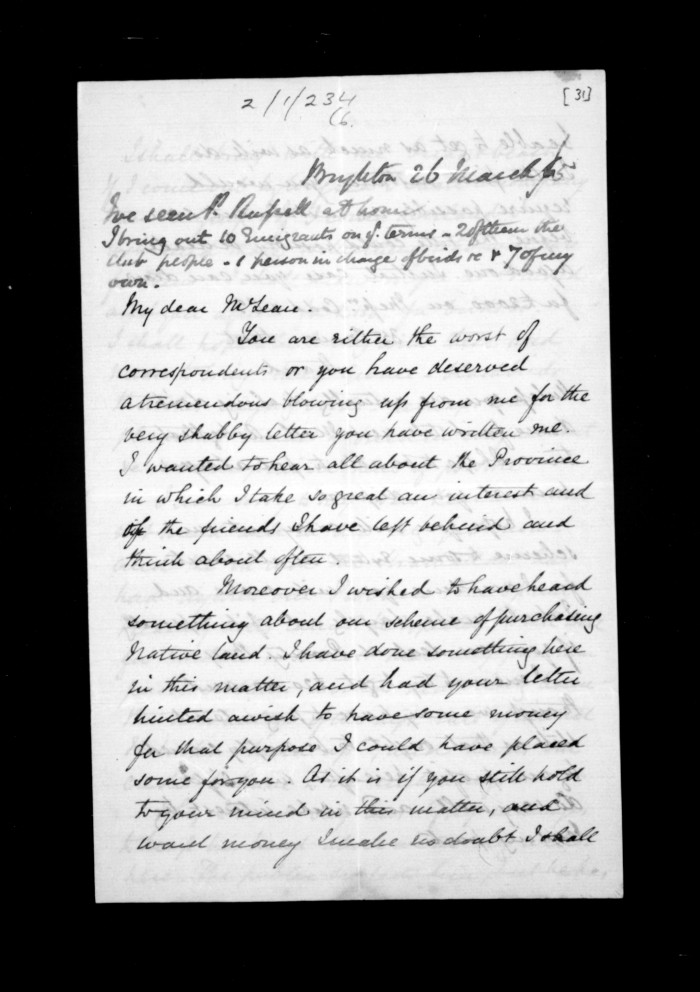 2/1/234
[31]
6.
Brighton 26 March 65
I've seen P. Russell at home
I bring out 10 Emigrants on yr. terms - 2 of them the
club people - 1 person in charge of birds &c & 7 of my
own.
My dear McLean.
You are either the worst of
correspondents or you have deserved
a tremendous blowing up from me for the
very shabby letter you have written me.
I wanted to hear all about the Province
in which I take so great an interest and
of the friends I have left behind and
think about often.
Moreover I wished to have heard
something about our scheme of purchasing
Native land. I have done something here
in this matter, and had your letter
hinted a wish to have some money
for that purpose I could have placed
some for you. As it is if you still hold
to your mind in this matter, and
want money I make no doubt I shall